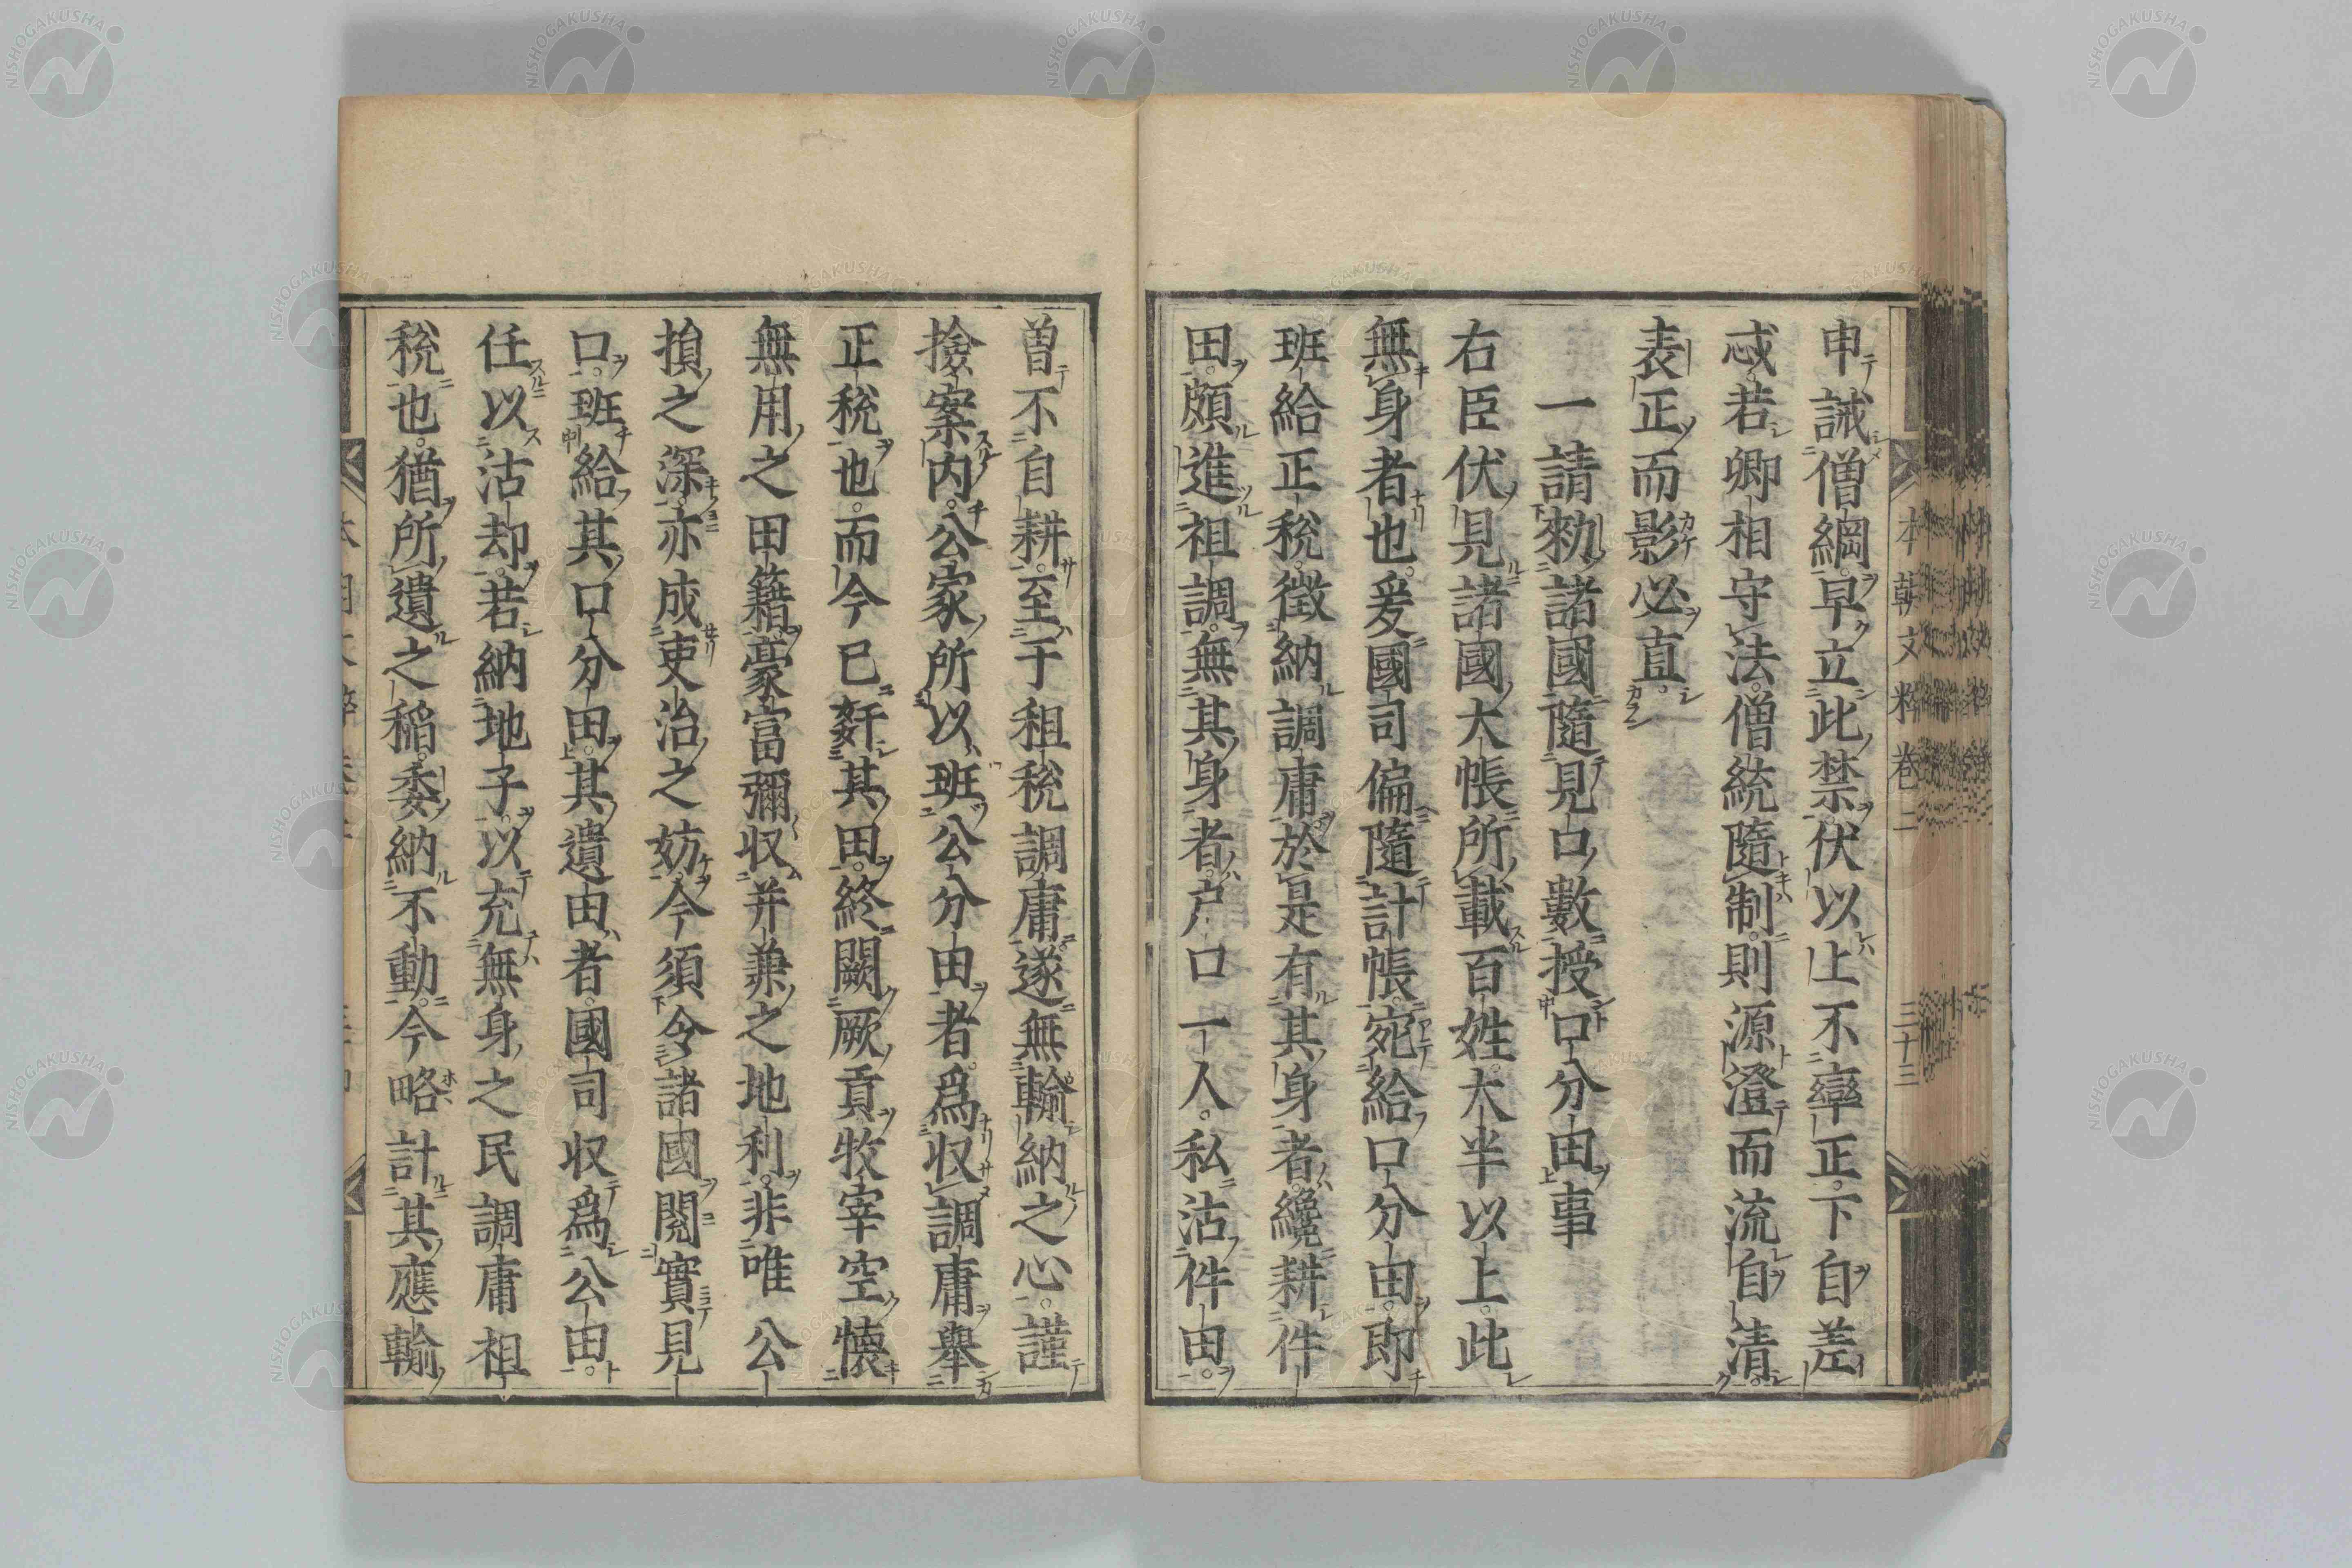 申誡僧綱早立此禁伏以上不率正下自差
忒若卿相守法僧統隨制則源澄而流自清
表正而影必直
一請勑諸國隨見口數授口分田事
右臣伏見諸國大帳所載百姓大半以上此
無身者也爰國司偏隨計帳宛給口分田即
班給正稅徵納調庸於是有其身者纔耕件
田頗進租調無其身者戶口一人私沽件田
曽不自耕至于租稅調庸遂無輸納之心謹
撿案内公家所以班公分田者爲収調庸舉
正稅也而今已姧其田終闕厥貢牧宰空懷
無用之田籍豪富彌収并兼之地利非唯公
損之深亦成吏治之妨今須令諸國閱實見
口班給其口分田其遺田者國司収爲公田
任以沽却若納地子以充無身之民調庸租
稅也猶所遺之稻委納不動今略計其應輸
本朝文粹卷二
三十三